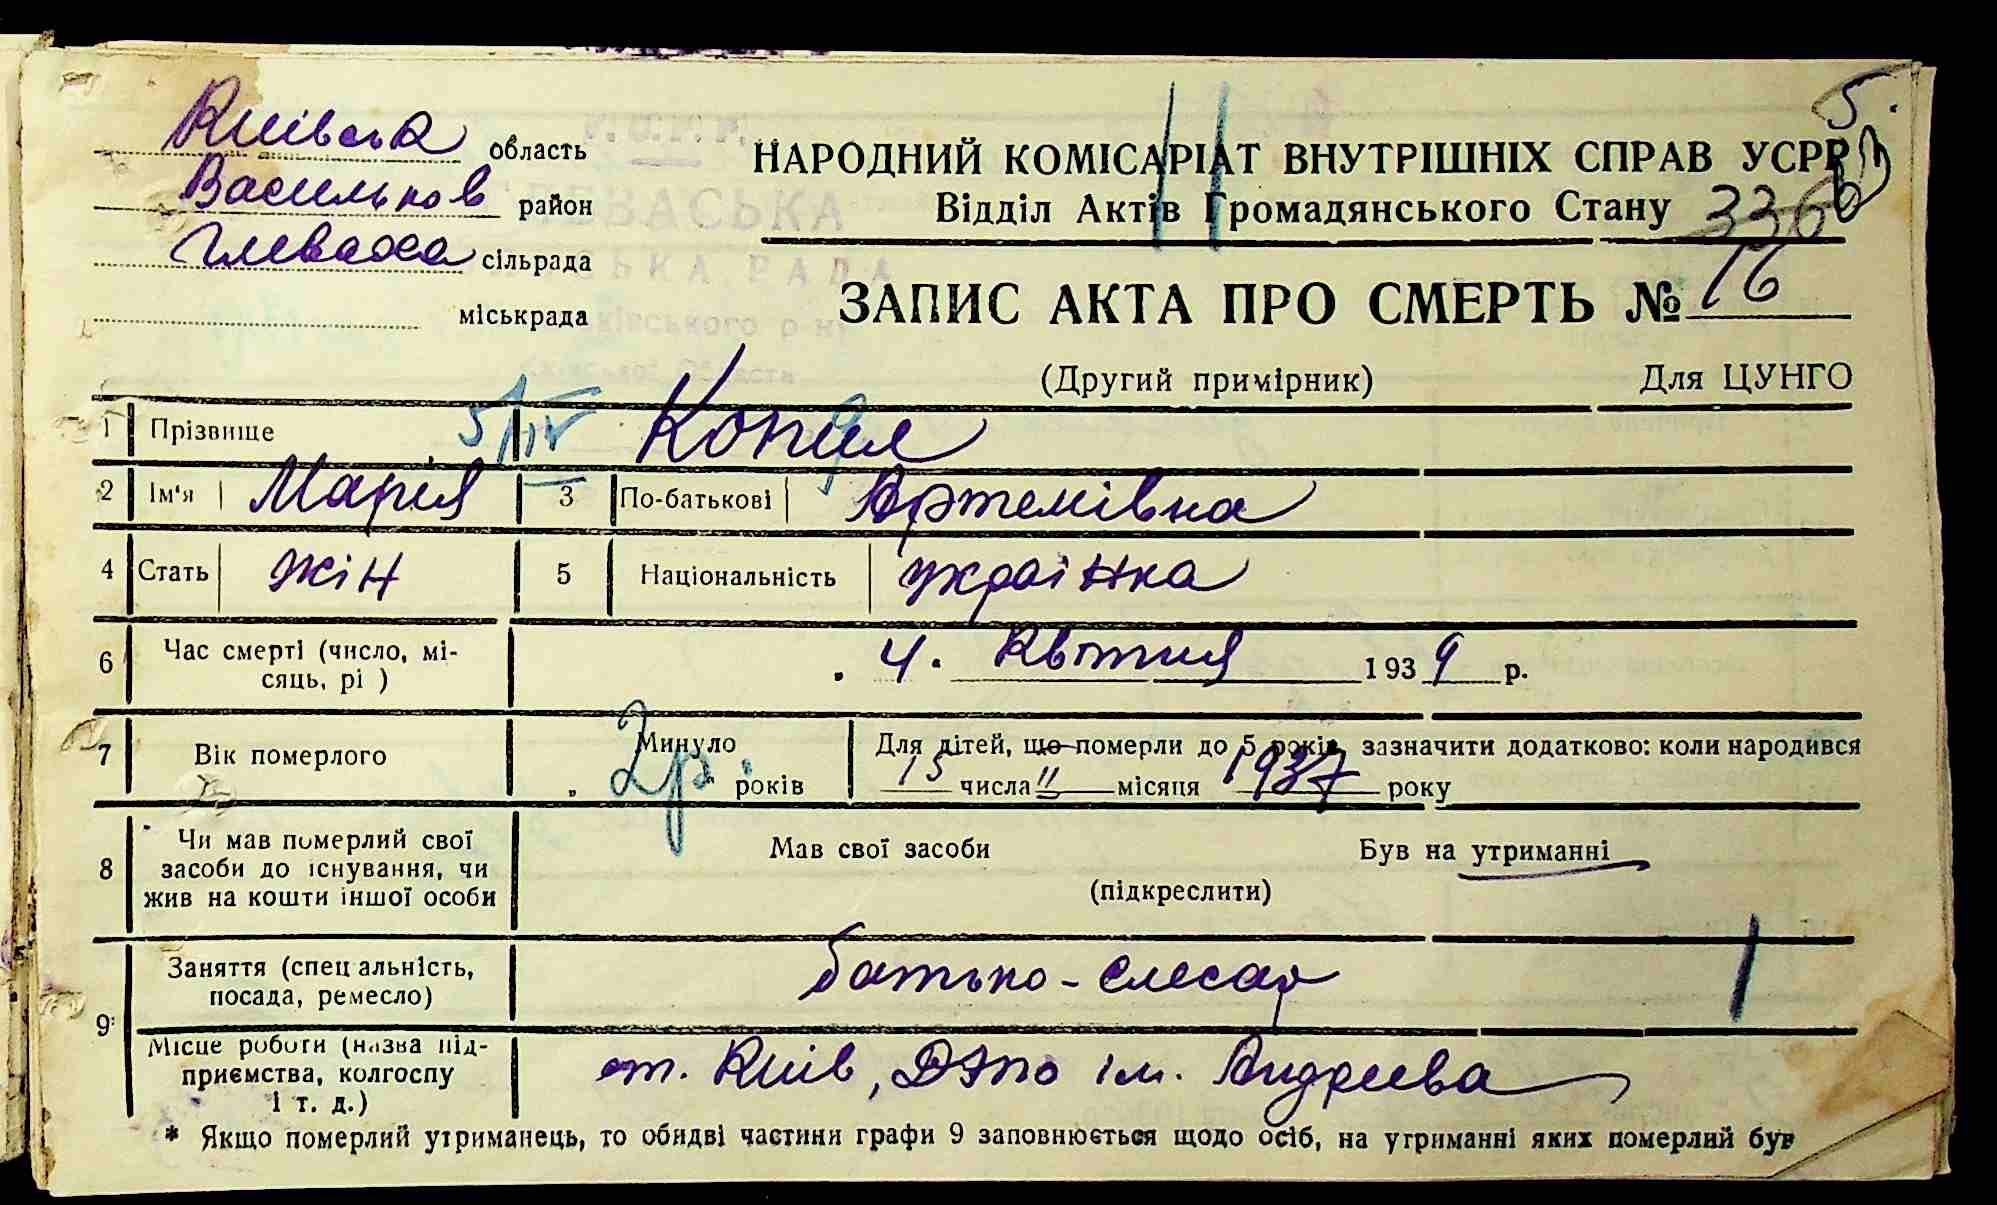 5.
Київська область
НАРОДНИЙ КОМІСАРІАТ ВНУТРІШНІХ СПРАВ УСРР
Васильков район
Відділ Актів Громадянського Стану 336
Глеваха сільрада
міськрада
ЗАПИС АКТА ПРО СМЕРТЬ № 16
(Другий примірник) Для ЦУНГО
1 Прізвище 5/IV Копил
2 Ім'я Марія 3 По-батькові Артемівна
4 Стать жін 5 Національність українка
6 Час смерті (число, мі-
сяць, рі ) 4. Квітня 1939 р.
7 Вік померлого Минуло 2 р. років Для дітей, що померли до 5 років зазначити додатково: коли народився
15 числа II місяця 1937 року
8 Чи мав померлий свої
засоби до існування, чи
жив на кошти іншої особи
Мав свої засоби Був на утриманні
(підкреслити)
9* Заняття (спец альність,
посада, ремесло) батько - слесар
Місце роботи (назва під-
приємства, колгоспу
і т. д.) ст. Київ, Депо ім. Андреєва
* Якщо померлий утриманець, то обидві частини графи 9 заповнюється щодо осіб, на утриманні яких померлий був